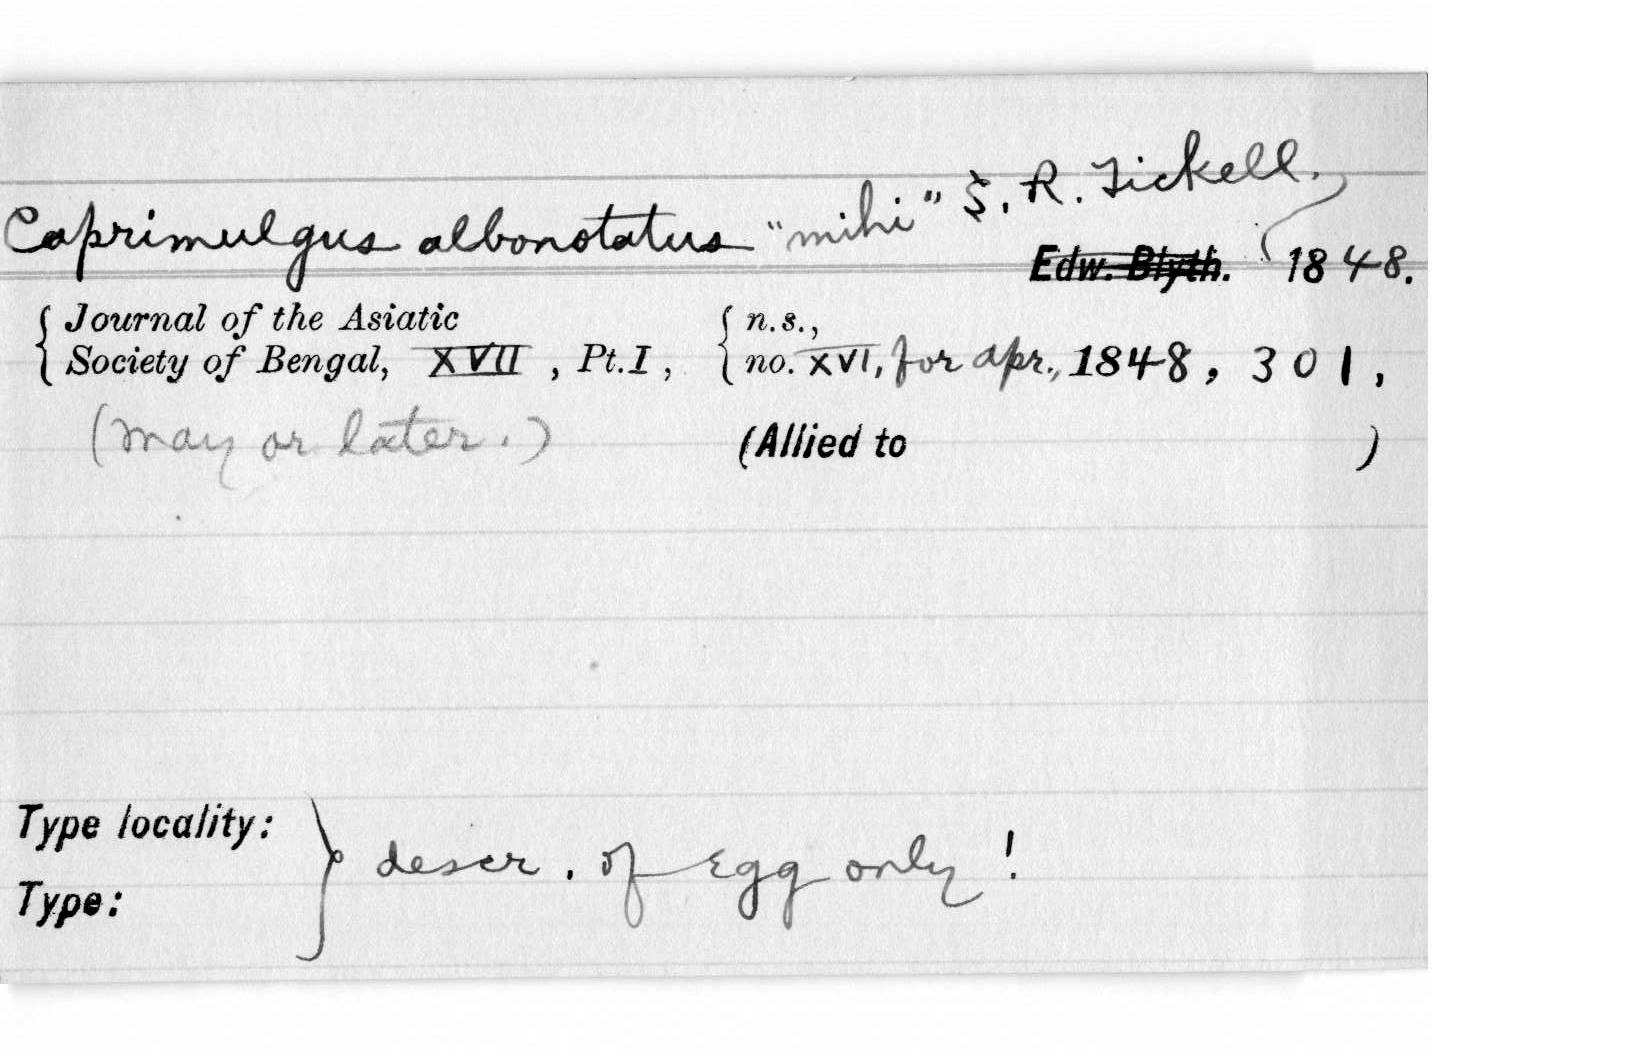 Caprimulgus albonotatus "mihi" S. R. Tickell.
Edw. Blyth. 1848.
Journal of the Asiatic Society of Bengal, XVII, Pt.I, n.s., no. XVI, for Apr., 1848, 301,
(May or later.) (Allied to )
Type locality:
descr. of Egg only!
Type: